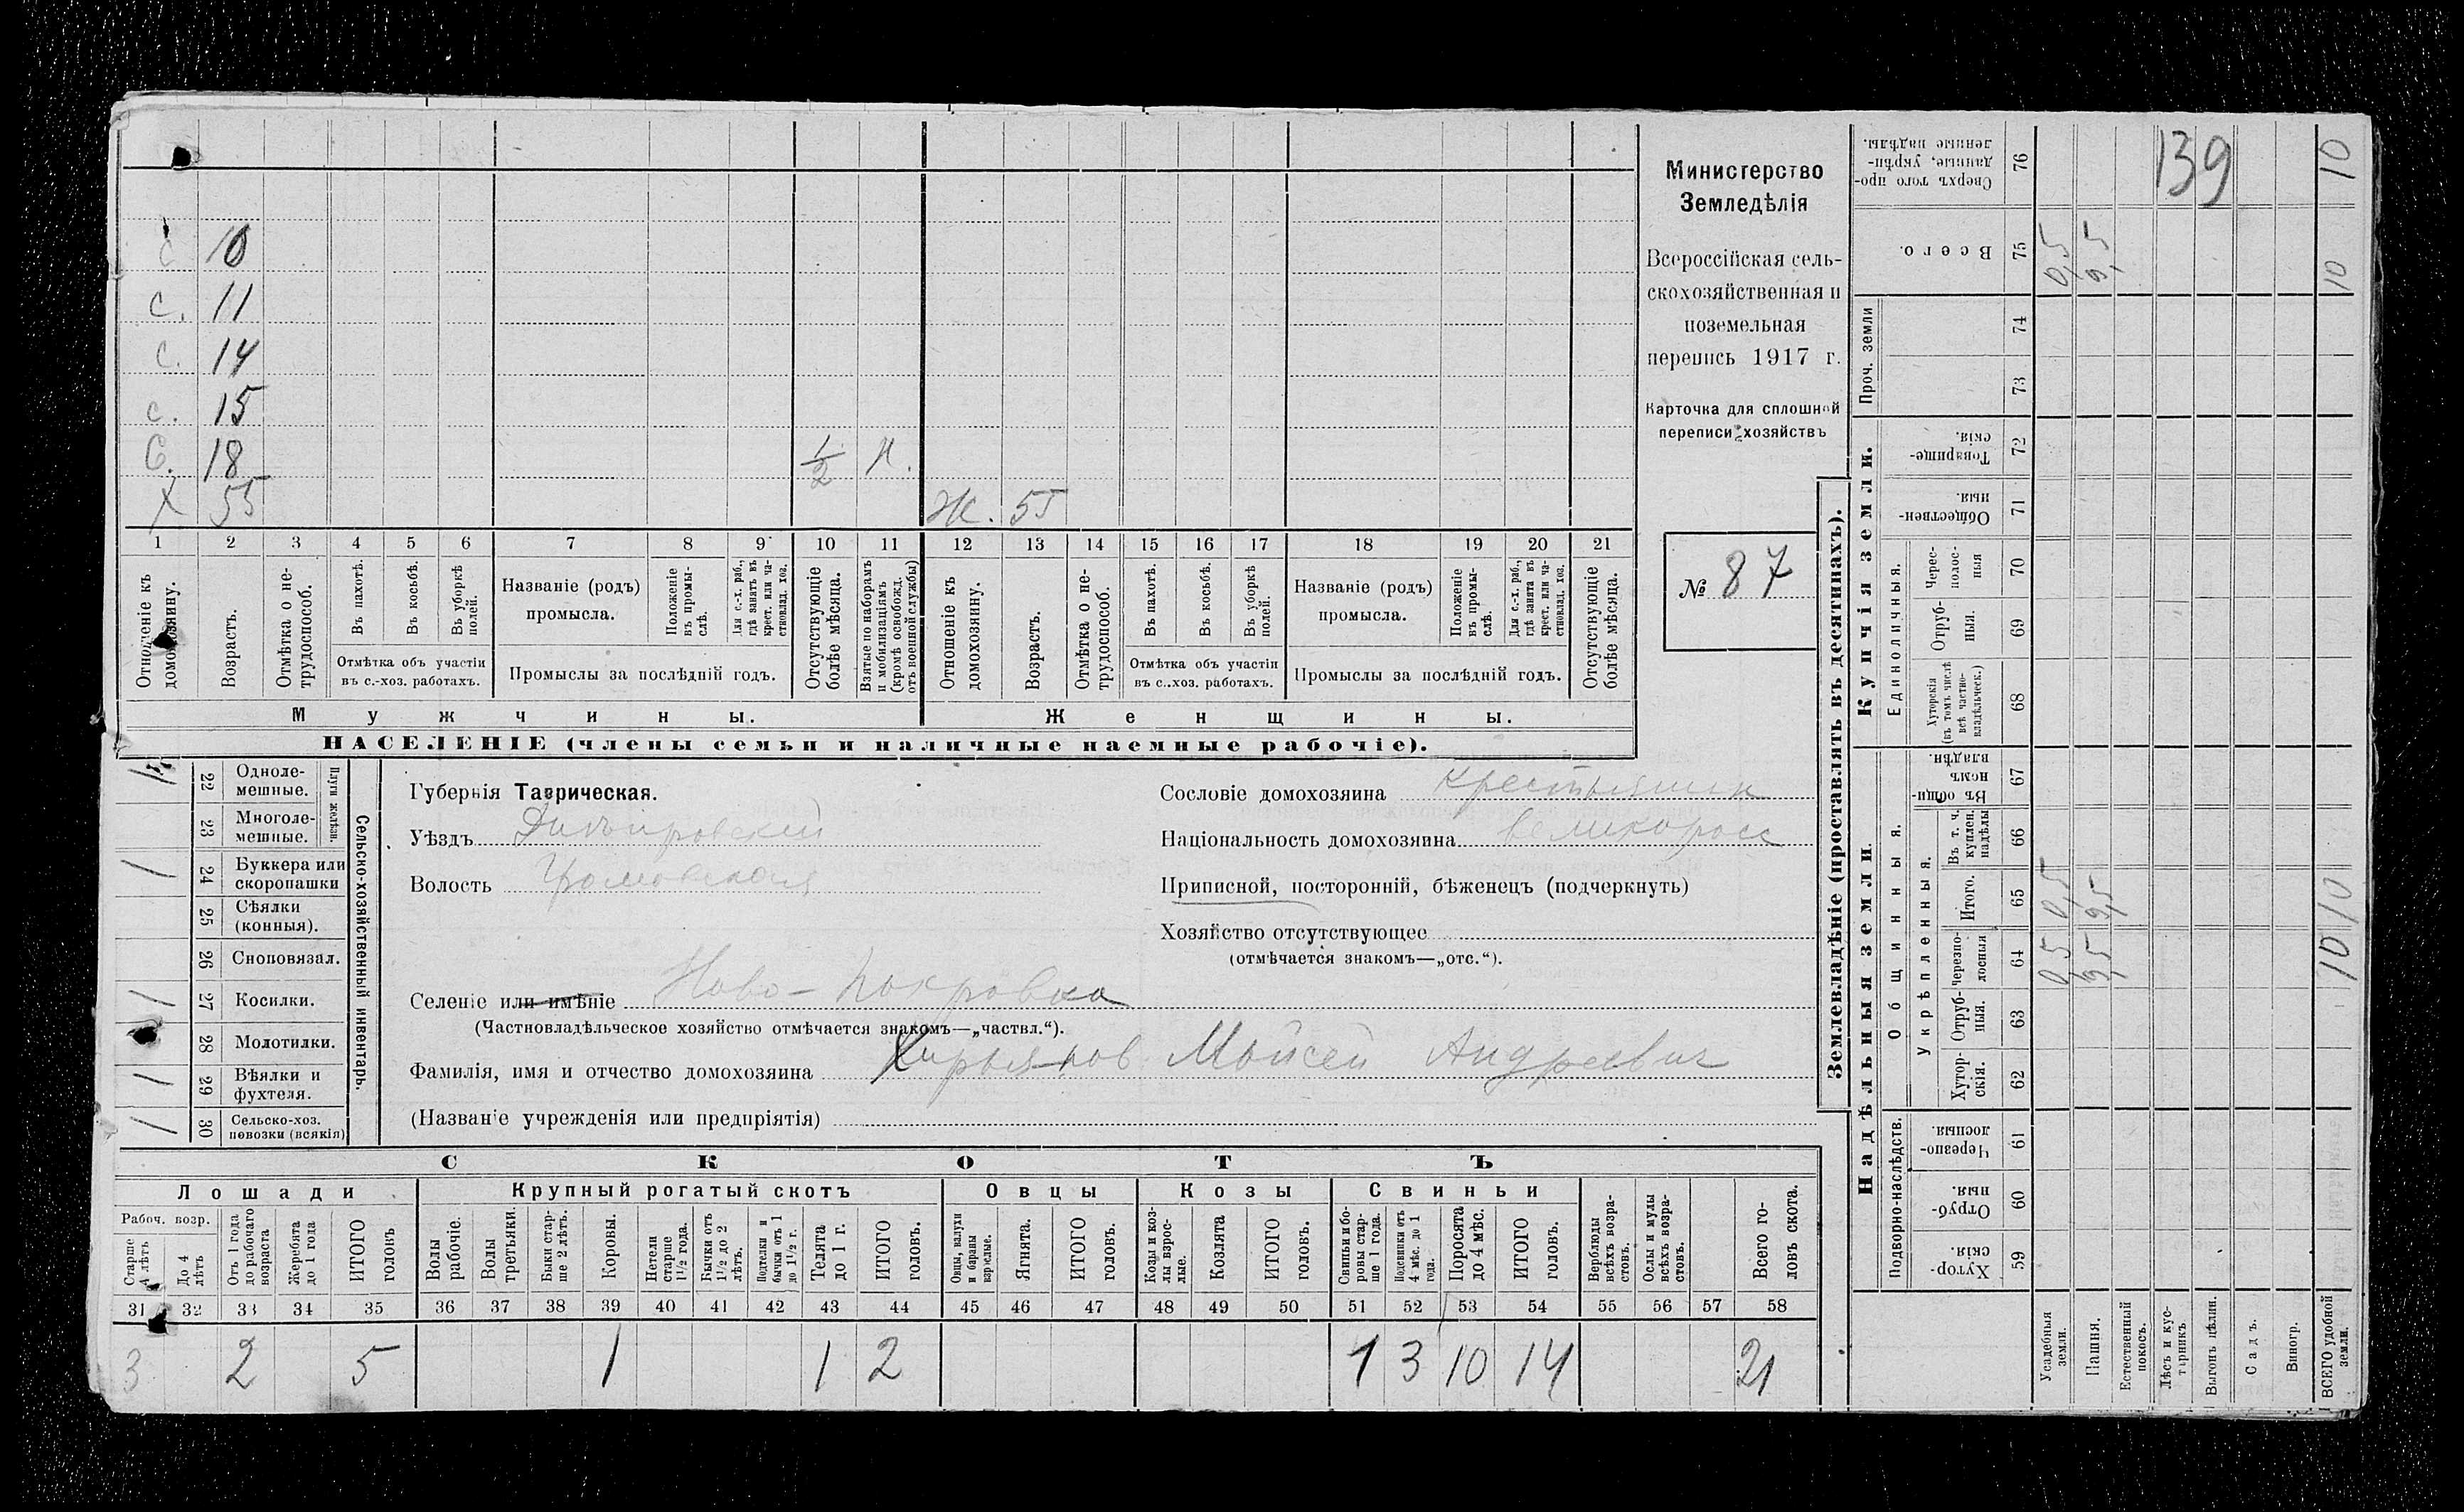 с 10
с. 11
с. 14
с. 15
С. 18 1/2 н.
Х 55 Ж. 55
1 2 3 4 5 6 7 8 9 10 11 12 13 14 15 16 17 18 19 20 21
Отношеніе къ домохозяину.
Возрастъ.
Отмѣтка о не-трудоспособ.
Въ пахотѣ.
Въ косьбѣ.
Въ уборкѣ полей.
Отмѣтка объ участіи
въ с.-хоз. работахъ.
Названіе (родъ)
промысла.
Положеніе въ промы-слѣ.
Для с.-х. раб., гдѣ занятъ въ крест. или ча-стновлад. хоз.
Промыслы за послѣдній годъ.
Отсутствующіе болѣе мѣсяца.
Взятые по наборамъ и мобилизаціямъ (кромѣ освобожд. отъ военной службы)
Отношеніе къ домохозяину.
Возрастъ.
Отмѣтка о не-трудоспособ.
Въ пахотѣ.
Въ косьбѣ.
Въ уборкѣ полей.
Отмѣтка объ участіи
въ с..хоз. работахъ.
Названіе (родъ)
промысла.
Положеніе въ промы-слѣ.
Для с.-х. раб., гдѣ занята въ крест. или ча-стновлад. хоз.
Промыслы за послѣдній годъ.
Отсутствующіе болѣе мѣсяца.
Мужчины.
Женщины.
НАСЕЛЕНІЕ (члены семьи и наличные наемные рабочіе).
Министерство
Земледѣлія
Всероссійская сель-
скохозяйственная и
поземельная
перепись 1917 г.
Карточка для сплошной
переписи хозяйствъ
№ 87
22 Одноле-
мешные.
23 Многоле-
мешные.
Плуги желѣзн.
1 24 Буккера или
скоропашки
25 Сѣялки
(конныя).
26 Сноповязал.
1 27 Косилки.
28 Молотилки.
1 29 Вѣялки и
фухтеля.
1 30 Сельско-хоз.
повозки (всякія)
Сельско-хозяйственный инвентарь.
Губернія Таврическая.
Уѣздъ Днѣпровскій
Волость
Сословіе домохозяина крестьянин
Національность домохозяина великоросс
Приписной, посторонній, бѣженецъ (подчеркнуть)
Хозяйство отсутствующее
(отмѣчается знакомъ—„отс.“).
Селеніе или имѣніе Ново-Покровка
(Частновладѣльческое хозяйство отмѣчается знакомъ—„частвл.“).
Фамилія, имя и отчество домохозяина Мойсей Андреевич
(Названіе учрежденія или предпріятія)
СКОТЪ
Лошади
Крупный рогатый скотъ
Овцы
Козы
Свиньи
Рабоч. возр.
Старше 4 лѣтъ
До 4 лѣтъ
Отъ 1 года до рабочаго возраста
Жеребята до 1 года
ИТОГО головъ
Волы рабочіе.
Волы третьяки.
Быки стар-ше 2 лѣтъ.
Коровы.
Нетели старше 1½ года.
Бычки отъ 1½ до 2 лѣтъ.
Подтелки и бычки отъ 1 до 1½ г.
Телята до 1 г.
ИТОГО головъ.
Овцы, валухи и бараны взрослые.
Ягнята.
ИТОГО головъ.
Козы и коз-лы взрос-лые.
Козлята
ИТОГО головъ.
Свиньи и бо-ровы стар-ше 1 года.
Подсвинки отъ 4 мѣс. до 1 года.
Поросята до 4 мѣс.
ИТОГО головъ.
Верблюды всѣхъ возра-стовъ.
Ослы и мулы всѣхъ возра-стовъ.
Всего го-ловъ скота.
31 32 33 34 35 36 37 38 39 40 41 42 43 44 45 46 47 48 49 50 51 52 53 54 55 56 57 58
3 2 5 1 1 2 1 3 10 14 21
Землевладѣніе (проставлять въ десятинахъ).
Купчія земли.
Надѣльныя земли
Проч. земли
Единоличныя.
Общинныя.
Укрѣпленныя.
Подворно-наслѣдств.
Сверхъ того про-данные, укрѣп-ленные надѣлы. 76 139 10
Всего. 75 0,5 9,5 10
74
73
Товарище-скія. 72
Обществен-ныя. 71
Черес-полос-ныя 70
Отруб-ныя. 69
Хуторскія (въ томъ числѣ всѣ частно-владѣльческ.) 68
Въ общин-номъ владѣн. 67
Въ т. ч. куплен. надѣлы 66
Итого. 65 0,5 9,5 10
Черезпо-лосныя 64 0,5 9,5 10
Отруб-ныя. 63
Хутор-скія. 62
Черезпо-лосныя. 61
Отруб-ныя. 60
Хутор-скія. 59
Усадебныя земли.
Пашня.
Естественный покосъ.
Лѣсъ и кус-тарникъ
Выгонъ цѣлин.
Садъ.
Виногр.
ВСЕГО удобной земли.